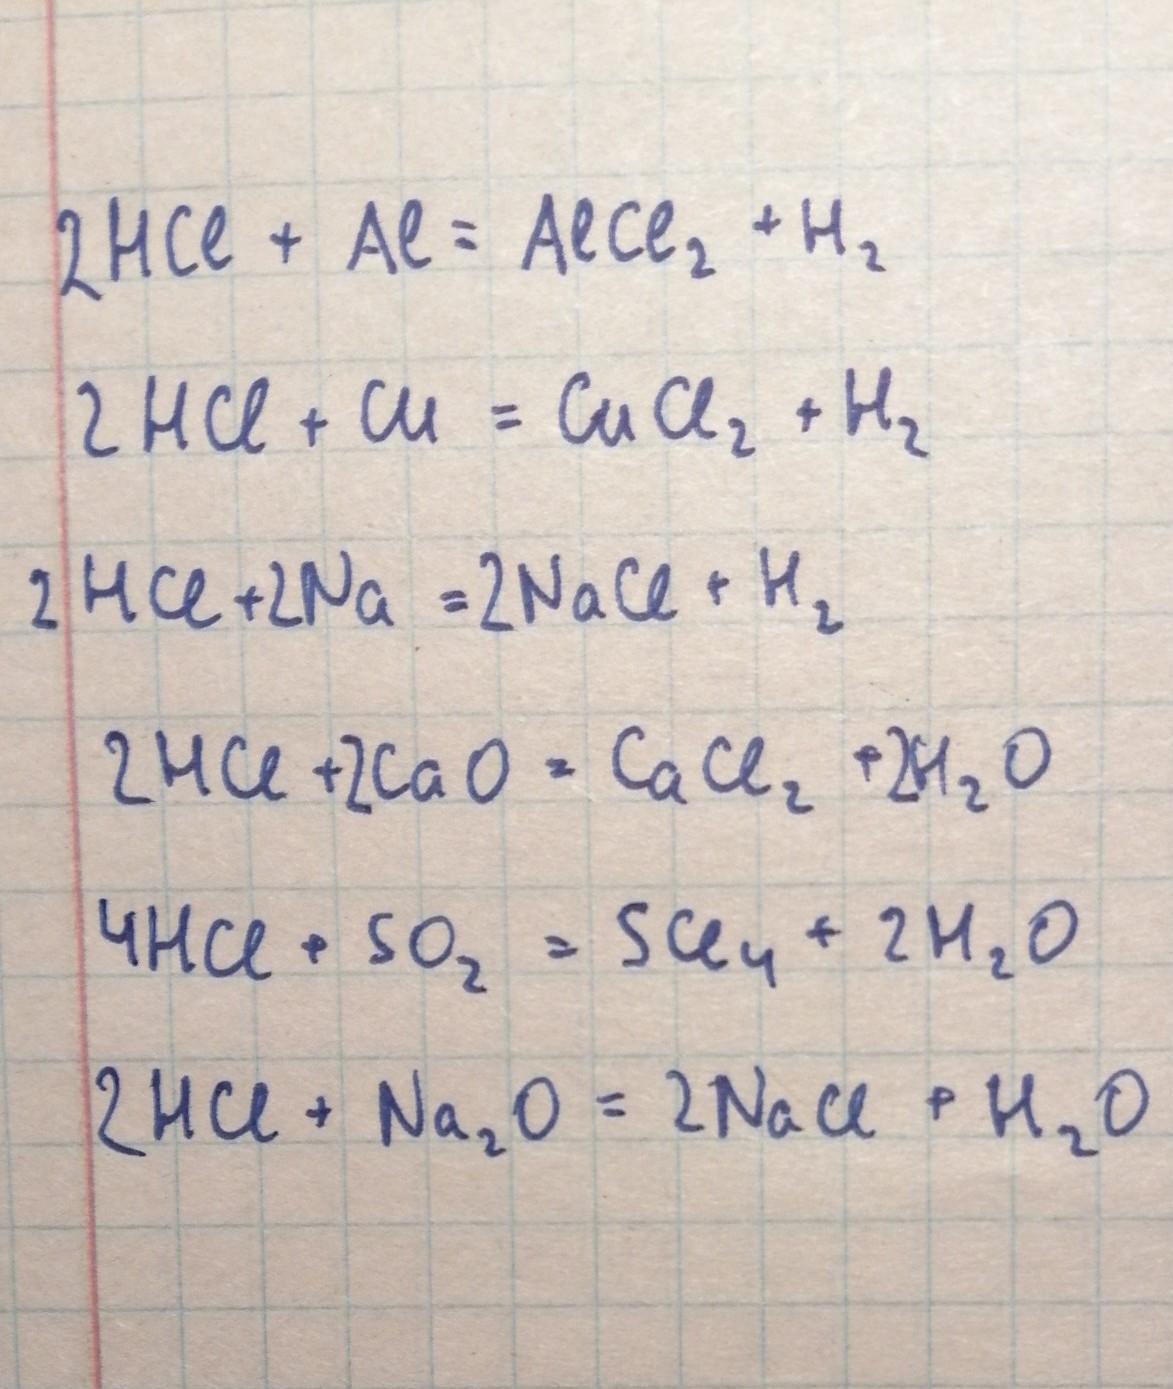 2HCl + Al = AlCl₂ + H₂
2HCl + Cu = CuCl₂ + H₂
2HCl + 2Na = 2NaCl + H₂
2HCl + 2CaO = CaCl₂ + 2H₂O
4HCl + SO₂ = SCl₄ + 2H₂O
2HCl + Na₂O = 2NaCl + H₂O